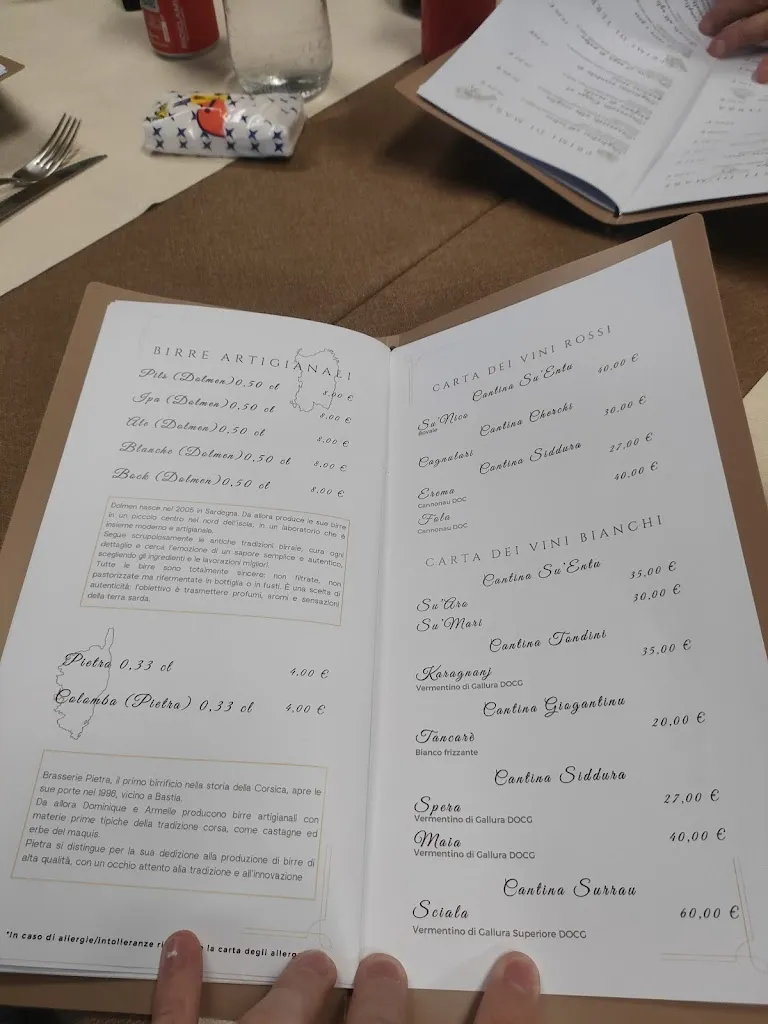 BIRRE ARTIGIANALI
Pils (Dolmen) 0,50 cl 8,00 €
Ipa (Dolmen) 0,50 cl 8,00 €
Ale (Dolmen) 0,50 cl 8,00 €
Blanche (Dolmen) 0,50 cl 8,00 €
Bock (Dolmen) 0,50 cl 8,00 €
Dolmen nasce nel 2005 in Sardegna. Da allora produce le sue birre
in un piccolo centro nel nord dell'isola, in un laboratorio che è
insieme moderno e artigianale.
Segue scrupolosamente le antiche tradizioni birraie, cura ogni
dettaglio e cerca l'emozione di un sapore semplice e autentico,
scegliendo gli ingredienti e le lavorazioni migliori.
Tutte le birre sono totalmente sincere: non filtrate, non
pastorizzate ma rifermentate in bottiglia o in fusti. È una scelta di
autenticità: l'obiettivo è trasmettere profumi, aromi e sensazioni
della terra sarda.
Pietra 0,33 cl 4,00 €
Colomba (Pietra) 0,33 cl 4,00 €
Brasserie Pietra, il primo birrificio nella storia della Corsica, apre le
sue porte nel 1996, vicino a Bastia.
Da allora Dominique e Armelle producono birre artigianali con
materie prime tipiche della tradizione corsa, come castagne ed
erbe del maquis.
Pietra si distingue per la sua dedizione alla produzione di birre di
alta qualità, con un occhio attento alla tradizione e all'innovazione
*In caso di allergie/intolleranze la carta degli
CARTA DEI VINI ROSSI
Cantina Su'Entu
Su'Nico 40,00 €
Bovale
Cantina Cherchi
Cagnulari 30,00 €
Cantina Siddura
Erema 27,00 €
Cannonau DOC
Fola 40,00 €
Cannonau DOC
CARTA DEI VINI BIANCHI
Cantina Su'Entu
Su'Aro 35,00 €
Su'Mari 30,00 €
Cantina Tondini
Karagnanj 35,00 €
Vermentino di Gallura DOCG
Cantina Giogantinu
Tancarè 20,00 €
Bianco frizzante
Cantina Siddura
Spera 27,00 €
Vermentino di Gallura DOCG
Maia 40,00 €
Vermentino di Gallura DOCG
Cantina Surrau
Sciala 60,00 €
Vermentino di Gallura Superiore DOCG